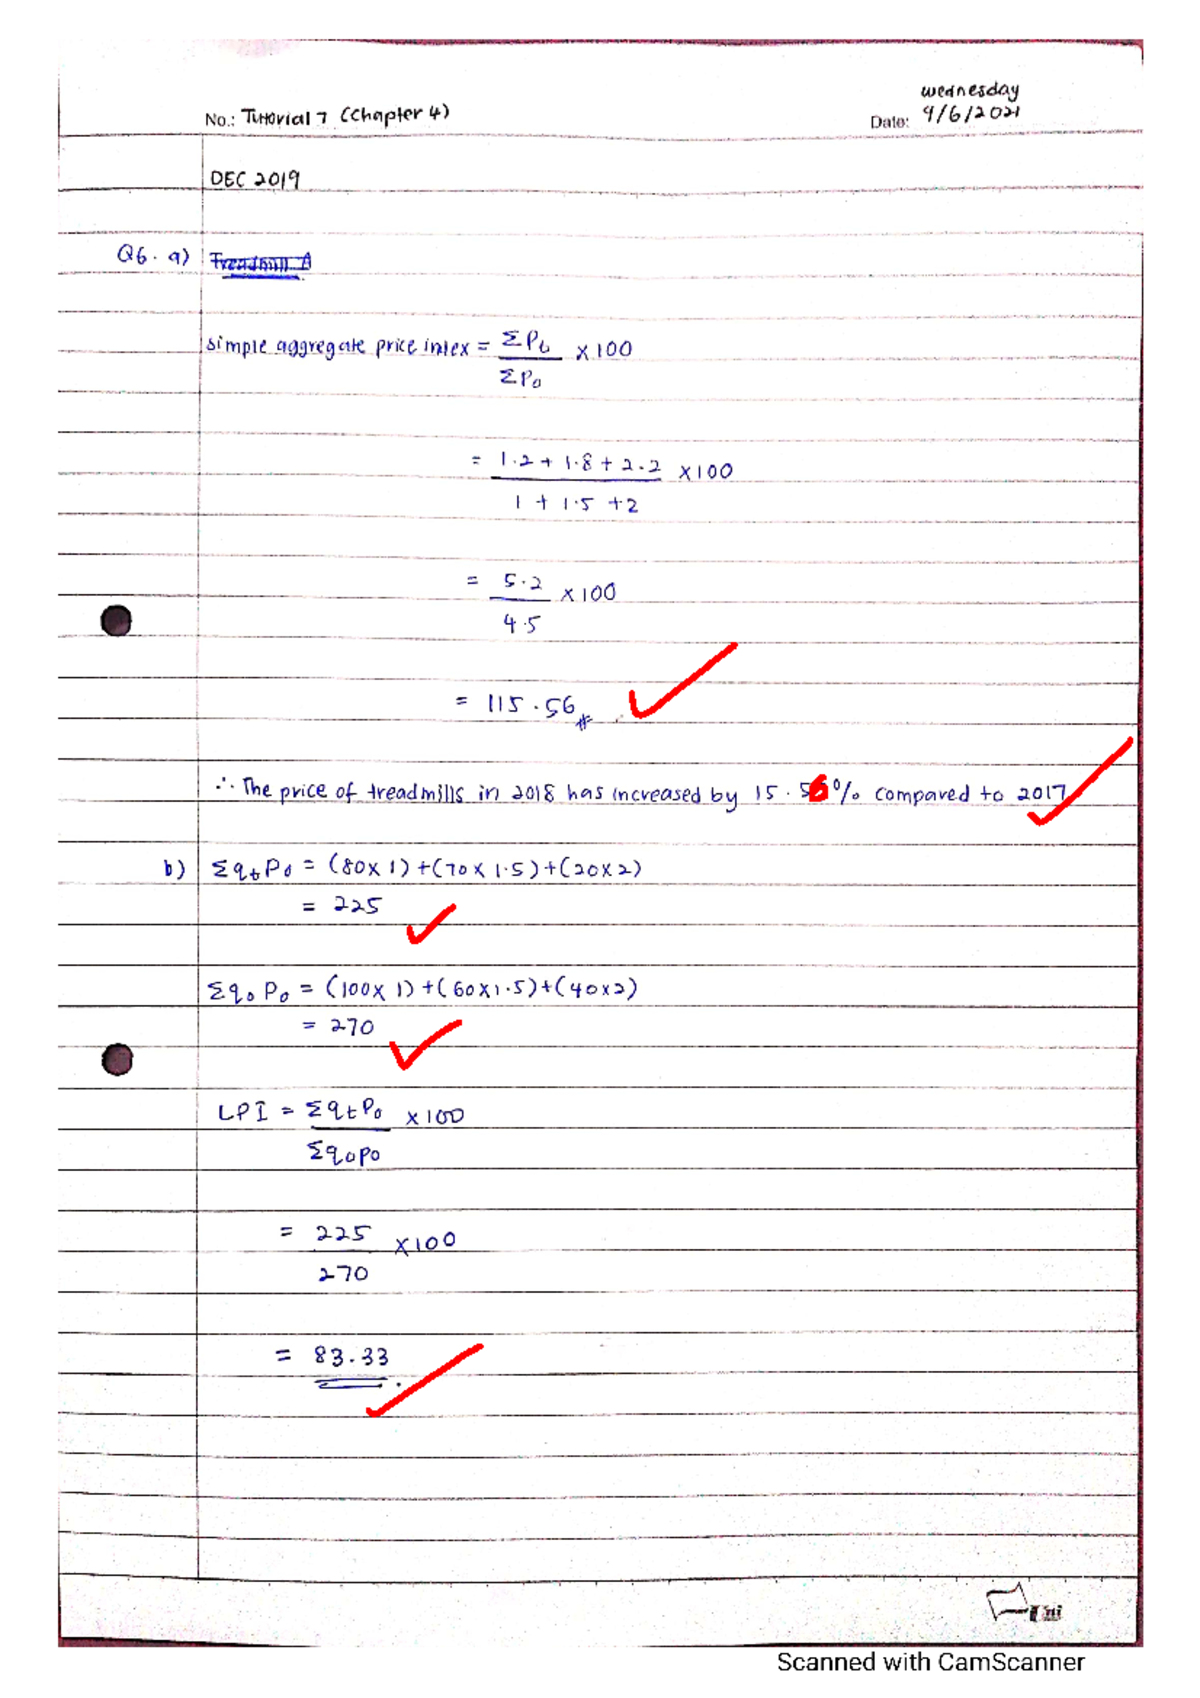 wednesday
No.: Tutorial 7 (Chapter 4) Date: 9/6/2021
DEC 2019
Q6. a) Treadmill A
simple aggregate price index = ΣPt / ΣPo × 100
= 1.2 + 1.8 + 2.2 / 1 + 1.5 + 2 × 100
= 5.2 / 4.5 × 100
= 115.56 #
∴ The price of treadmills in 2018 has increased by 15.56% compared to 2017
b) ΣqtPo = (80×1)+(70×1.5)+(20×2)
= 225
Σqo Po = (100×1)+(60×1.5)+(40×2)
= 270
LPI = ΣqtPo / Σqopo × 100
= 225 / 270 ×100
= 83.33
Scanned with CamScanner